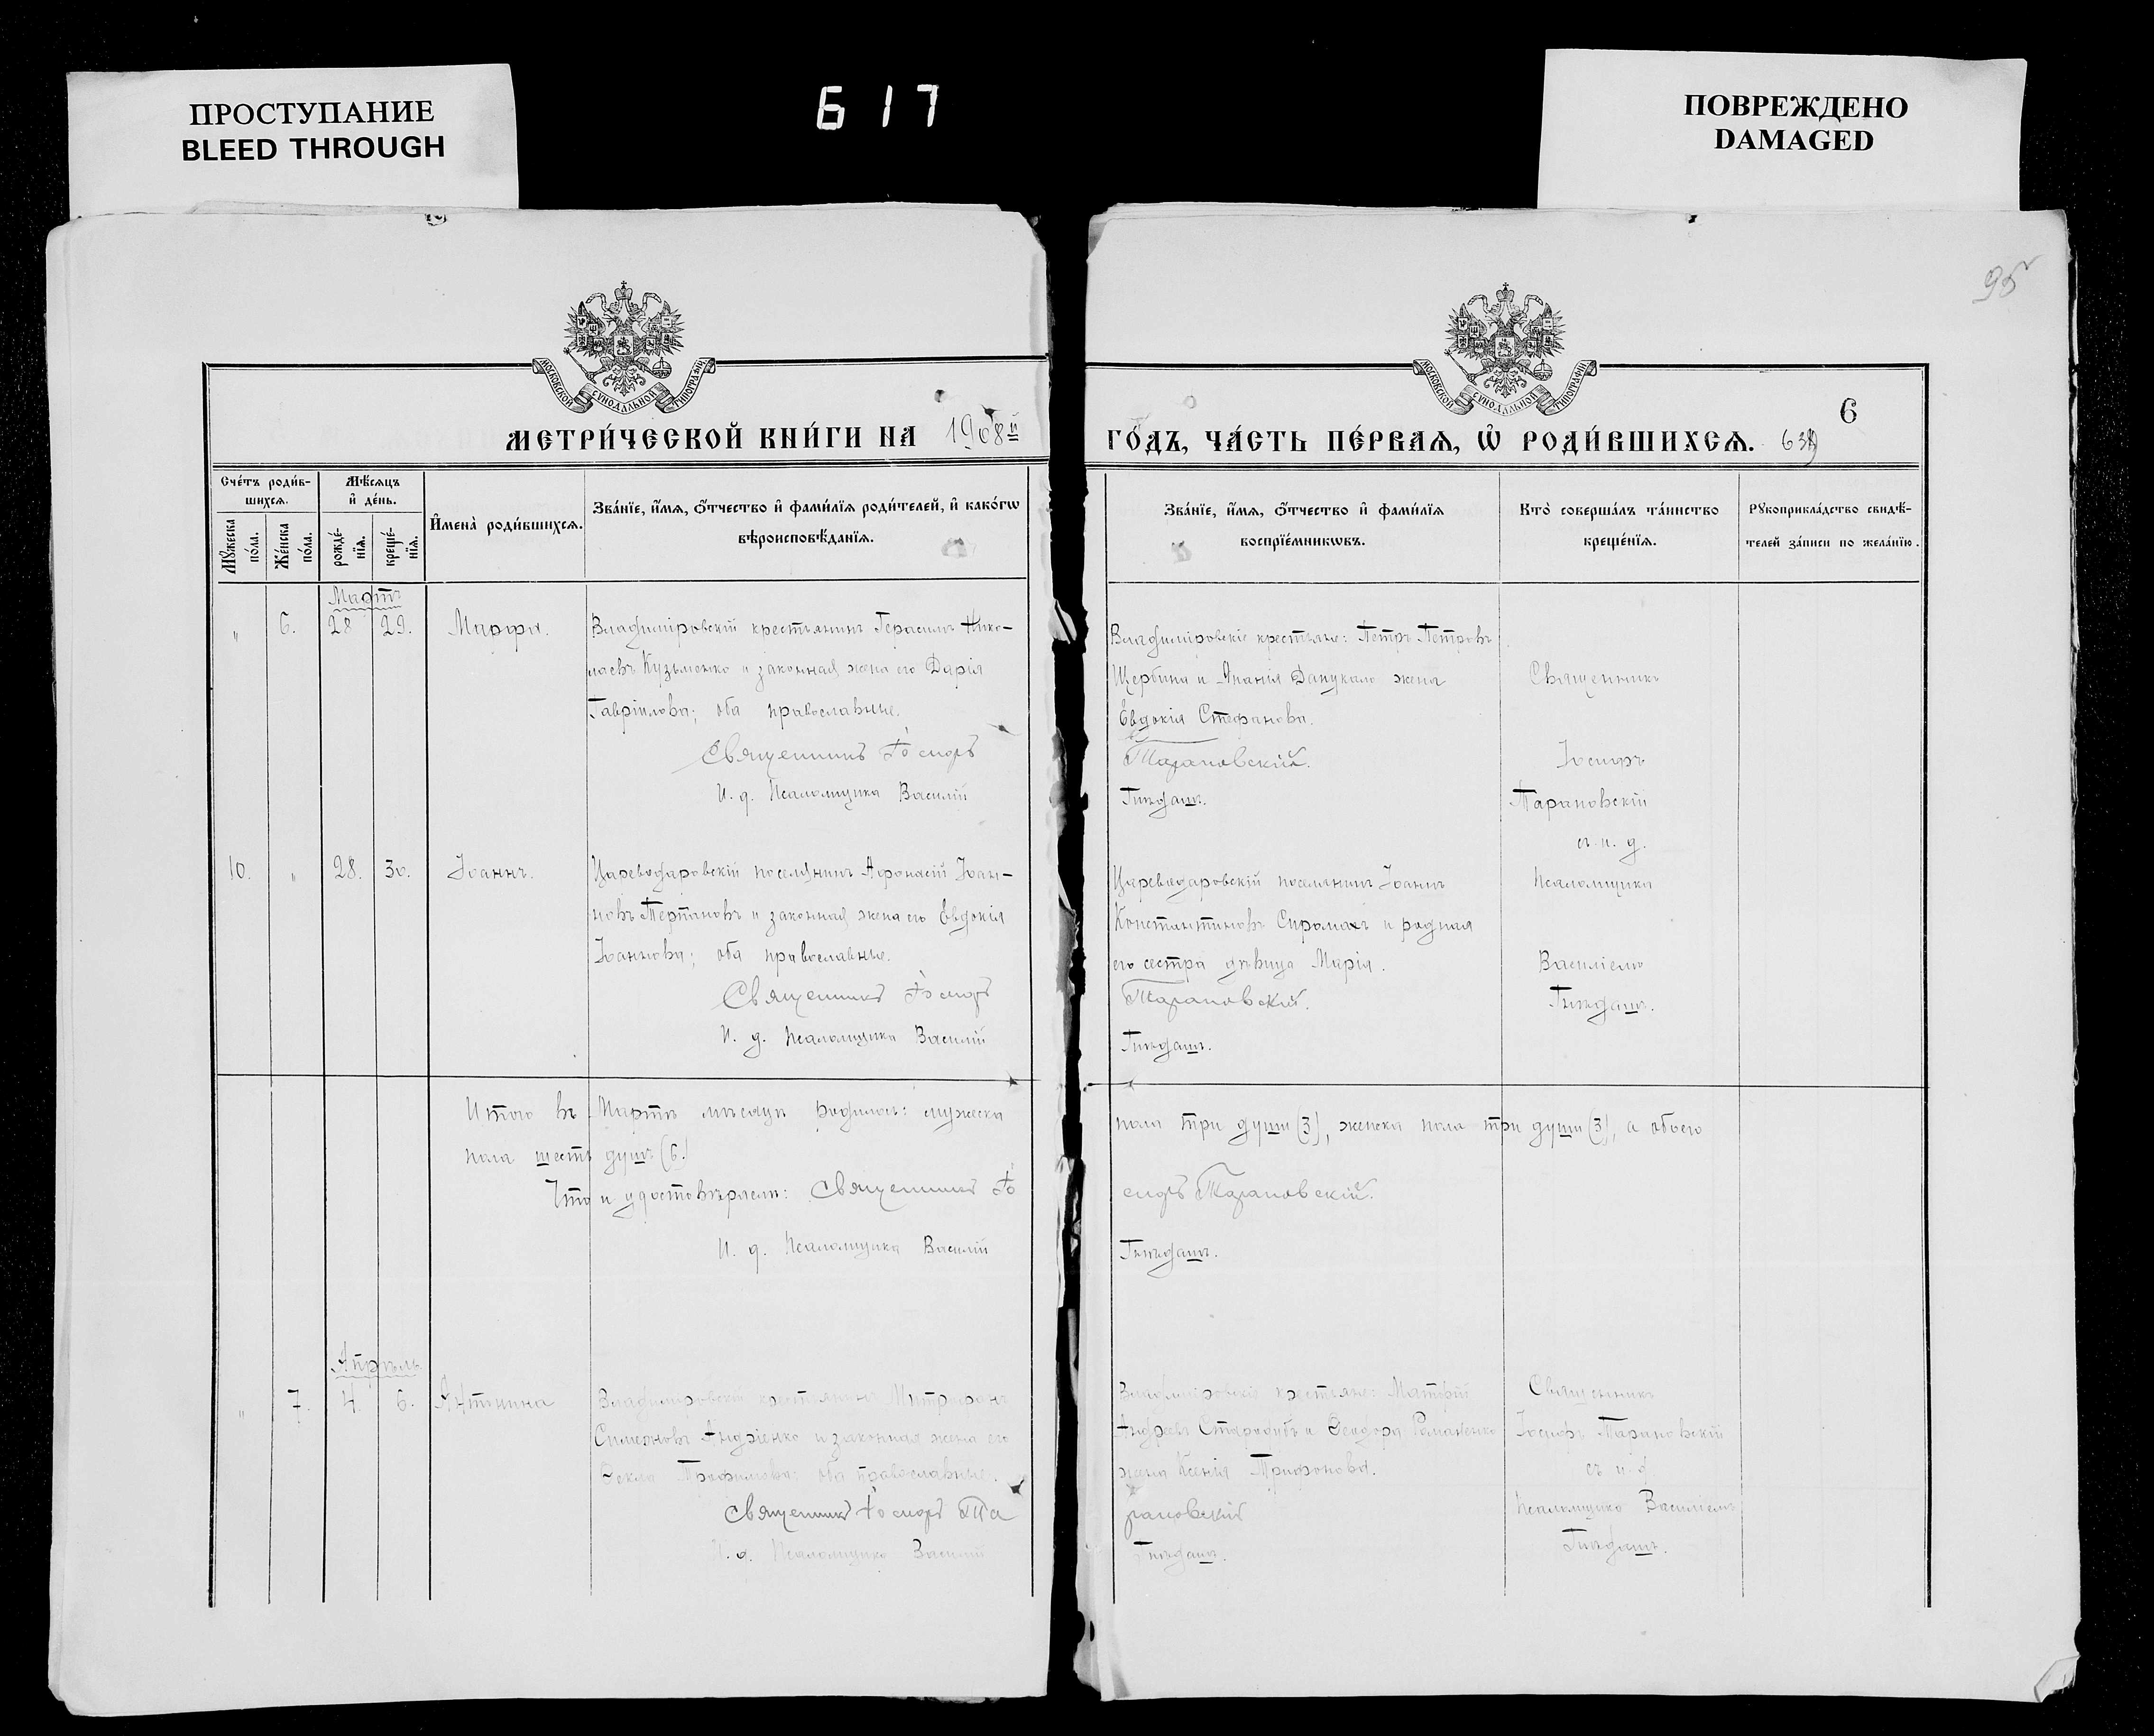 ПРОСТУПАНИЕ
BLEED THROUGH
617
ПОВРЕЖДЕНО
DAMAGED
95
МОСКОВСКОЙ СѴНОДАЛЬНОЙ ТИПОГРАФІИ
МОСКОВСКОЙ СѴНОДАЛЬНОЙ ТИПОГРАФІИ
6
МЕТРИ́ЧЕСКОЙ КНИ́ГИ НА 1908й
ГО́ДЪ, ЧА́СТЬ ПЕ́РВАѦ, Ѡ҆ РОДИ́ВШИХСѦ.
Сче́тъ роди́в-
шихсѧ.
Мѣ́сѧцъ
и҆ де́нь.
Мꙋ́жеска по́ла.
Же́нска по́ла.
рожде́-
нїѧ.
креще́-
нїѧ.
И҆мена̀ роди́вшихсѧ.
Зва́нїе, и҆́мѧ, ѻ҆́тчество и҆ фами́лїѧ роди́телей, и҆ како́гѡ
вѣроисповѣ́данїѧ.
Зва́нїе, и҆́мѧ, ѻ҆́тчество и҆ фами́лїѧ
воспрїе́мникѡвъ.
Кто̀ соверша́лъ та́инство
креще́нїѧ.
Рꙋкоприкла́дство свидѣ́-
телей за́писи по жела́нїю.
Мартъ
" 6. 28 29. Марфа.
Владиміровскій крестьянинъ Герасимъ Нико-
лаевъ Кузьменко и законная жена его Дарія
Гавріилова; оба православные.
Священникъ Іосифъ
И. д. Псаломщика Василій
Владиміровскіе крестьяне: Петръ Петровъ
Щербина и жена
Евдокія Стефанова.
Тарановскій.
Гиждашъ.
Священникъ
Іосифъ
Тарановскій
съ и. д.
Псаломщика
Василіемъ
Гиждашъ.
10. " 28. 30. Іоаннъ.
Цареводаровскій поселянинъ Афонасій Іоан-
новъ Терпановъ и законная жена его Евдокія
Іоаннова; оба православные.
Священникъ Іосифъ
И. д. Псаломщика Василій
Цареводаровскій поселянинъ Іоаннъ
Константиновъ Сиромахъ и родная
его сестра дѣвица Марія.
Тарановскій.
Гиждашъ.
Итого въ Мартѣ мѣсяцѣ родилось: мужеска
пола три души (3), женска пола три души (3), а обоего
пола шесть душъ (6.)
Что и удостовѣряемъ: Священникъ Іо
сифъ Тарановскій.
И. д. Псаломщика Василій
Гиждашъ.
Апрѣль
" 7. 4. 6. Антонина
Владиміровскій крестьянинъ Митрофанъ
Симеоновъ Андріенко и законная жена его
Ѳекла Трофимова; оба православные.
Священникъ Іосифъ Та
И. д. Псаломщика Василій
Владиміровскіе крестьяне: Матфій
Андреевъ Стародубъ и Ѳеодора Романенко
жена Ксенія Трифонова.
рановскій
Гиждашъ.
Священникъ
Іосифъ Тарановскій
съ и. д.
Псаломщика Василіемъ
Гиждашъ.